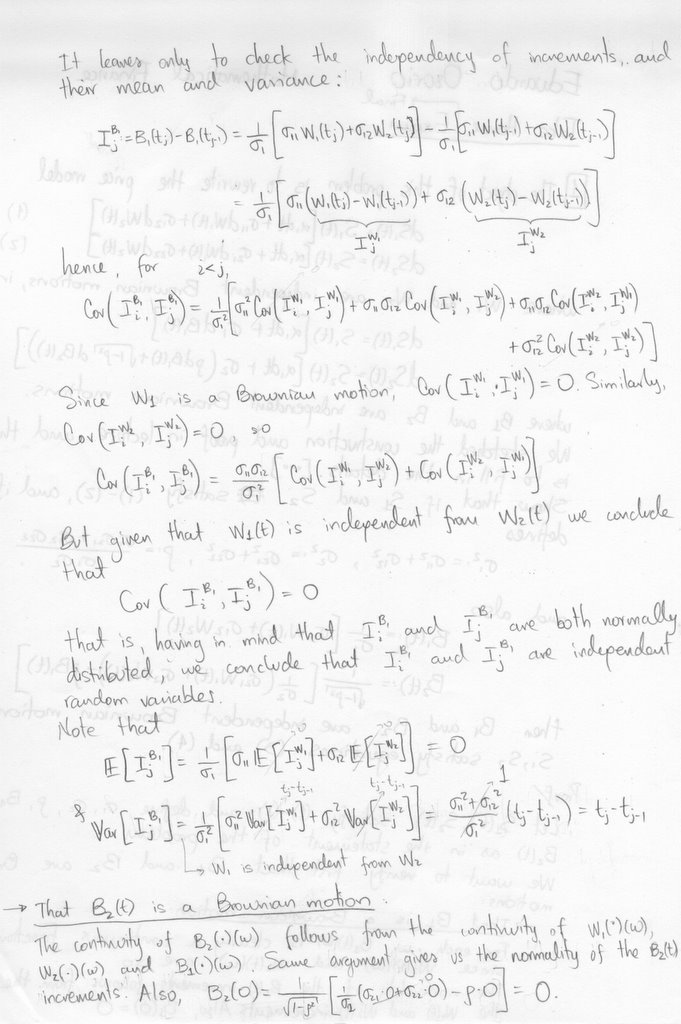 It leaves only to check the independency of increments, and
their mean and variance:
I_j^{B_1} := B_1(t_j) - B_1(t_{j-1}) = \frac{1}{σ_1} [σ_{11} W_1(t_j) + σ_{12} W_2(t_j)] - \frac{1}{σ_1} [σ_{11} W_1(t_{j-1}) + σ_{12} W_2(t_{j-1})]
= \frac{1}{σ_1} [σ_{11} (W_1(t_j) - W_1(t_{j-1})) + σ_{12} (W_2(t_j) - W_2(t_{j-1}))]
I_j^{W_1} I_j^{W_2}
hence, for i<j,
Cov(I_i^{B_1}, I_j^{B_1}) = \frac{1}{σ_1^2} [σ_{11}^2 Cov(I_i^{W_1}, I_j^{W_1}) + σ_{11} σ_{12} Cov(I_i^{W_1}, I_j^{W_2}) + σ_{11} σ_{12} Cov(I_i^{W_2}, I_j^{W_1})
+ σ_{12}^2 Cov(I_i^{W_2}, I_j^{W_2})]
Since W_1 is a Brownian motion, Cov(I_i^{W_1}, I_j^{W_1}) = 0. Similarly,
Cov(I_i^{W_2}, I_j^{W_2}) = 0, so
Cov(I_i^{B_1}, I_j^{B_1}) = \frac{σ_{11} σ_{12}}{σ_1^2} [Cov(I_i^{W_1}, I_j^{W_2}) + Cov(I_i^{W_2}, I_j^{W_1})]
But given that W_1(t) is independent from W_2(t) we conclude
that
Cov(I_i^{B_1}, I_j^{B_1}) = 0
that is, having in mind that I_i^{B_1} and I_j^{B_1} are both normally
distributed, we conclude that I_i^{B_1} and I_j^{B_1} are independent
random variables.
Note that
𝔼[I_j^{B_1}] = \frac{1}{σ_1} [σ_{11} 𝔼[I_j^{W_1}] + σ_{12} 𝔼[I_j^{W_2}]] = 0
t_j - t_{j-1} t_j - t_{j-1} 1
& Var[I_j^{B_1}] = \frac{1}{σ_1^2} [σ_{11}^2 Var[I_j^{W_1}] + σ_{12}^2 Var[I_j^{W_2}]] = \frac{σ_{11}^2 + σ_{12}^2}{σ_1^2} (t_j - t_{j-1}) = t_j - t_{j-1}
↳ W_1 is independent from W_2
→ That B_2(t) is a Brownian motion.
The continuity of B_2(·)(ω) follows from the continuity of W_1(·)(ω),
W_2(·)(ω) and B_1(·)(ω). Same argument gives us the normality of the B_2(t)
increments. Also, B_2(0) = \frac{1}{\sqrt{1-ρ^2}} [\frac{1}{σ_2} (σ_{21}·0 + σ_{22}·0) - ρ·0] = 0.